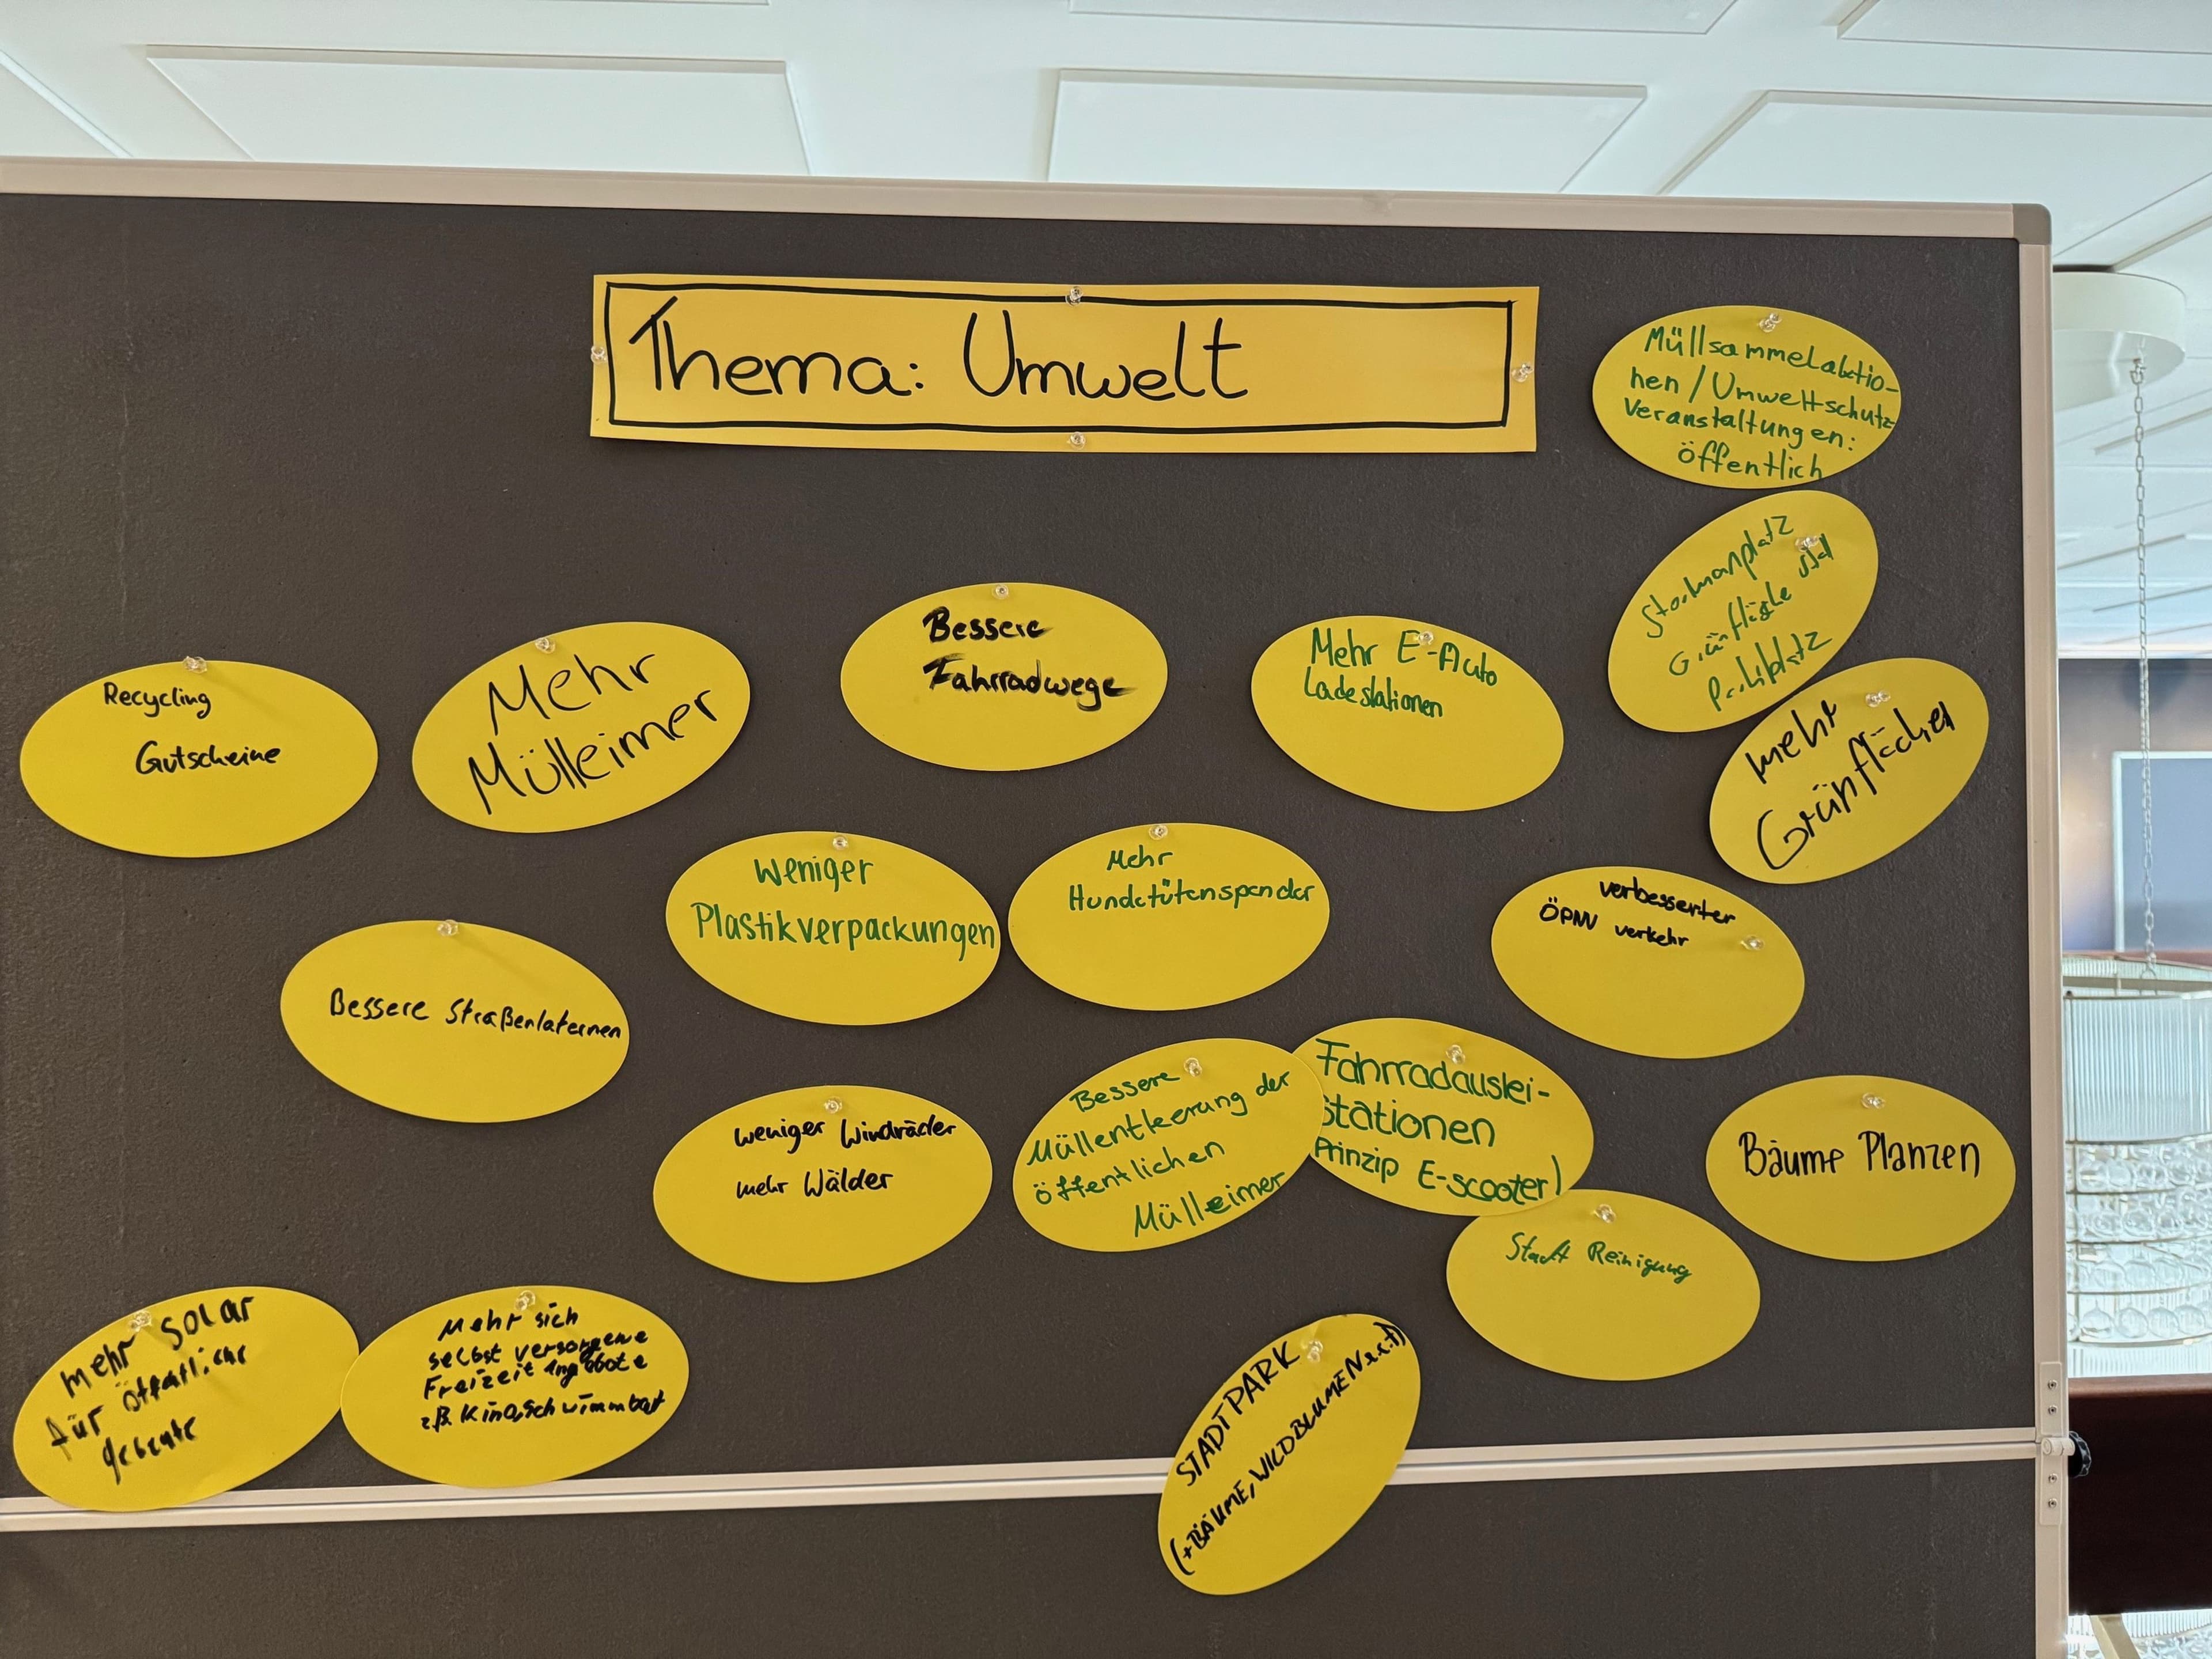 Thema: Umwelt
Müllsammelaktio-
nen / Umweltschutz
Veranstaltungen:
öffentlich
Stockmanplatz
Grünfläche statt
Parkplatz
mehr
Grünflächen
Recycling
Gutscheine
Mehr
Mülleimer
Bessere
Fahrradwege
Mehr E-Auto
Ladestationen
Weniger
Plastikverpackungen
Mehr
Hundetütenspender
verbesserter
ÖPNV verkehr
Bessere Straßenlaternen
weniger Windräder
mehr Wälder
Bessere
Müllentleerung der
öffentlichen
Mülleimer
Fahrradauslei-
stationen
Prinzip E-scooter)
Bäume Planzen
Stadt Reinigung
mehr Solar
für öffentliche
gebeute
Mehr sich
selbst versorgene
Freizeit Angebote
z.B. Kino, Schwimmbat
STADTPARK
(+BÄUME, WILDBLUMEN e.c.t)